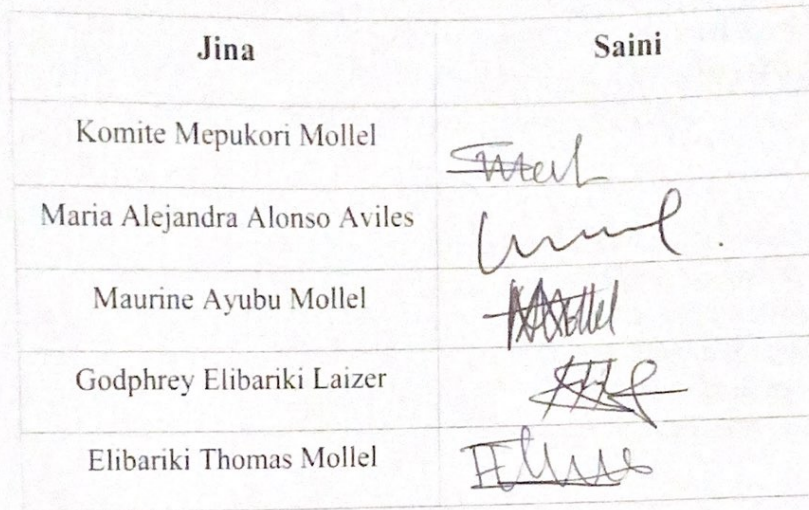 Jina Saini
Komite Mepukori Mollel
Maria Alejandra Alonso Aviles
Maurine Ayubu Mollel
Godphrey Elibariki Laizer
Elibariki Thomas Mollel